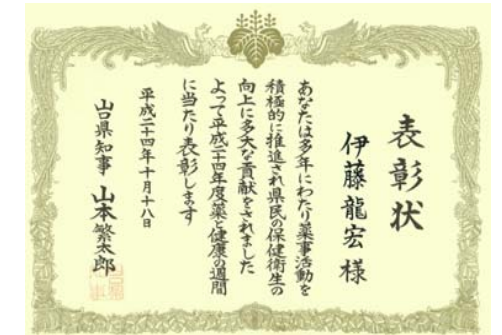 表彰状
伊藤龍宏様
あなたは多年にわたり薬事活動を
積極的に推進され県民の保健衛生の
向上に多大な貢献をされました
よって平成二十四年度薬と健康の週間
に当たり表彰します
平成二十四年十月十八日
山口県知事 山本繁太郎